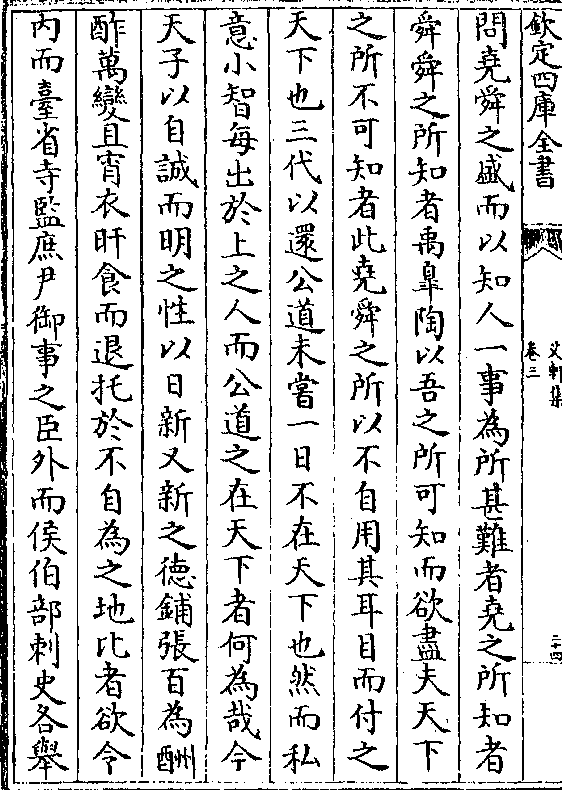 欽定四庫全書
艾軒集
卷三
二十四
問堯舜之盛而以知人一事為所甚難者堯之所知者
舜舜之所知者禹臯陶以吾之所可知而欲盡夫天下
之所不可知者此堯舜之所以不自用其耳目而付之
天下也三代以還公道未嘗一日不在天下也然而私
意小智每出於上之人而公道之在天下者何為哉今
天子以自誠而明之性以日新又新之德鋪張百為酬
酢萬變且宵衣旰食而退托於不自為之地比者欲令
内而臺省寺監庶尹御事之臣外而侯伯部刺史各舉